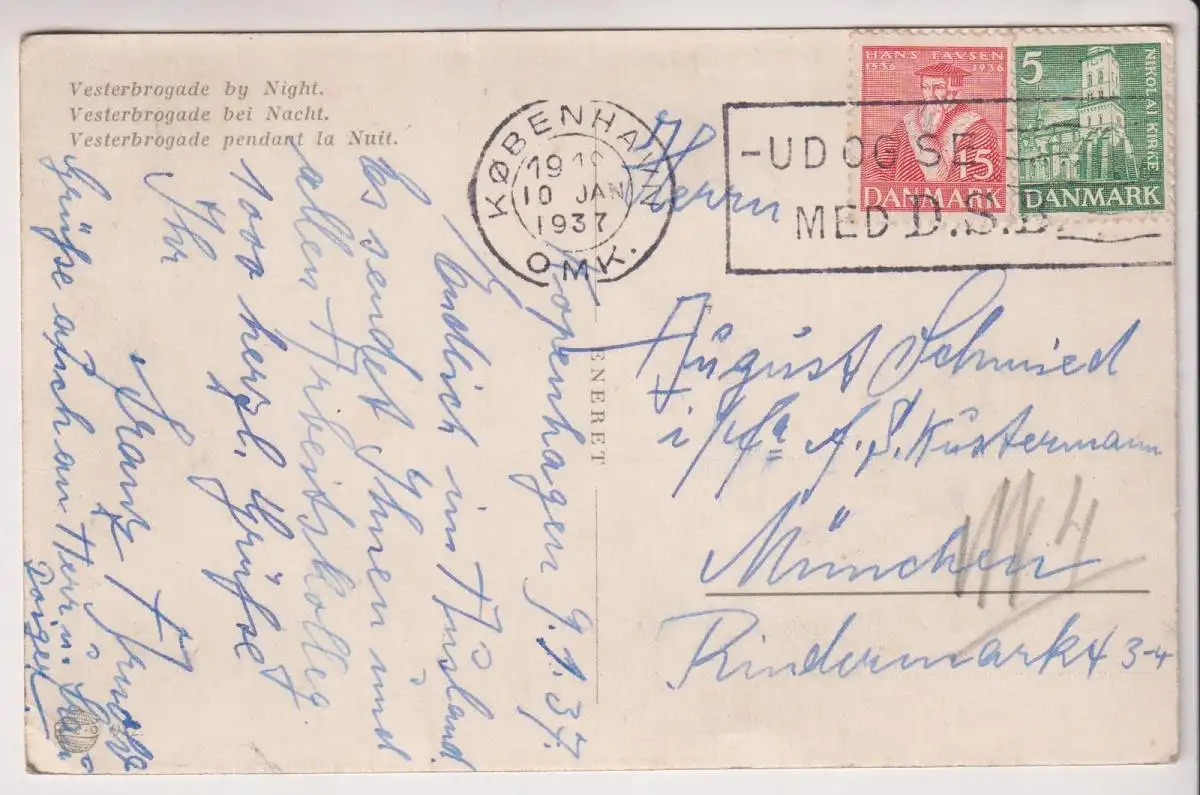 Vesterbrogade by Night.
Vesterbrogade bei Nacht.
Vesterbrogade pendant la Nuit.
KØBENHAVN
10 JAN
1937
OMK.
-UD OG SE
MED D.S.B.
HANS TAVSEN
1536 1936
15
DANMARK
5
NIKOLAJ KIRKE
DANMARK
ENERET
Kopenhagen 9.1.37.
Endlich im Ausland.
Es sendet Ihnen und
allen Arbeitskolleg.
1000 herzl. Grüße
Ihr
Franz
Grüße auch an Herrn
Herrn
August Schmied
i/Fa. F. S. Kustermann
München
Rindermarkt 3-4